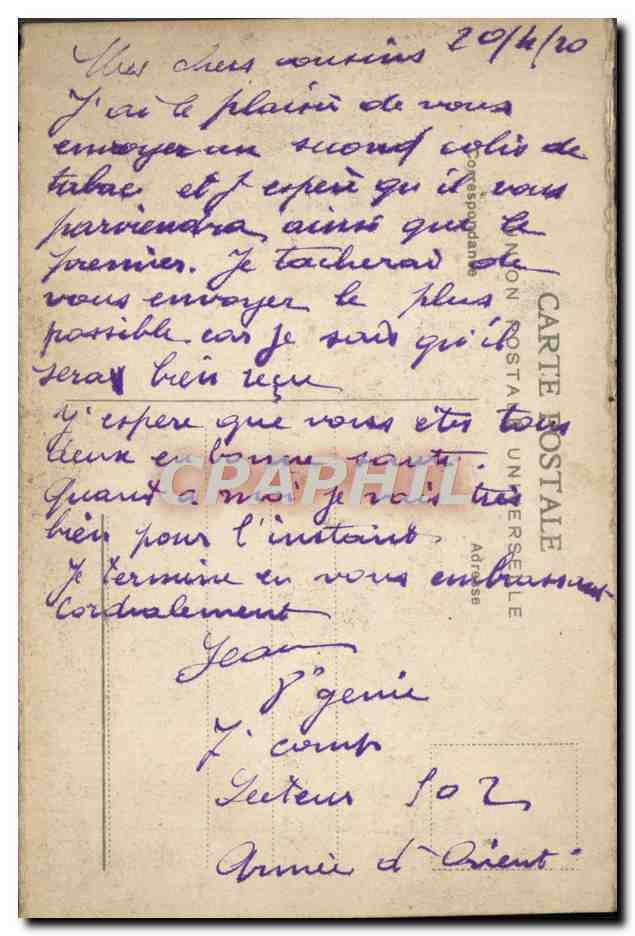 Mes chers cousins 20/4/20
J'ai le plaisir de vous
envoyer un second colis de
tabac et j'espere qu'il vous
parviendra ainsi que le
premier. Je tacherai de
vous envoyer le plus
possible car je sais qu'il
sera bien reçu
J'espere que vous etes tous
deux en bonne santé.
Quant a moi je vais très
bien pour l'instant.
Je termine en vous embrassant
cordialement
Jean
genie
comp
Secteur 502
Armée d'Orient
CARTE POSTALE
UNION POSTALE UNIVERSELLE
Correspondance
Adresse
CPAPHIL